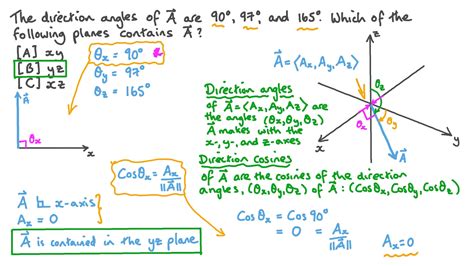 The direction angles of A⃗ are 90°, 97°, and 165°. Which of the
following planes contains A⃗?
[A] xy
[B] yz
[C] xz
θx = 90°
θy = 97°
θz = 165°
A⃗
θx
x
A⃗ = ⟨Ax, Ay, Az⟩
z
θz
θx
θy
x
y
A⃗
Direction angles
of A⃗ = ⟨Ax, Ay, Az⟩ are
the angles (θx, θy, θz)
A⃗ makes with the
x-, y-, and z-axes
Direction cosines
of A⃗ are the cosines of the direction
angles, (θx, θy, θz) of A⃗ : (Cosθx, Cosθy, Cosθz)
Cosθx = Ax / ||A⃗||
A⃗ ⊾ x-axis
Ax = 0
A⃗ is contained in the yz plane
Cosθx = Cos 90°
= 0 = Ax / ||A⃗||
Ax = 0